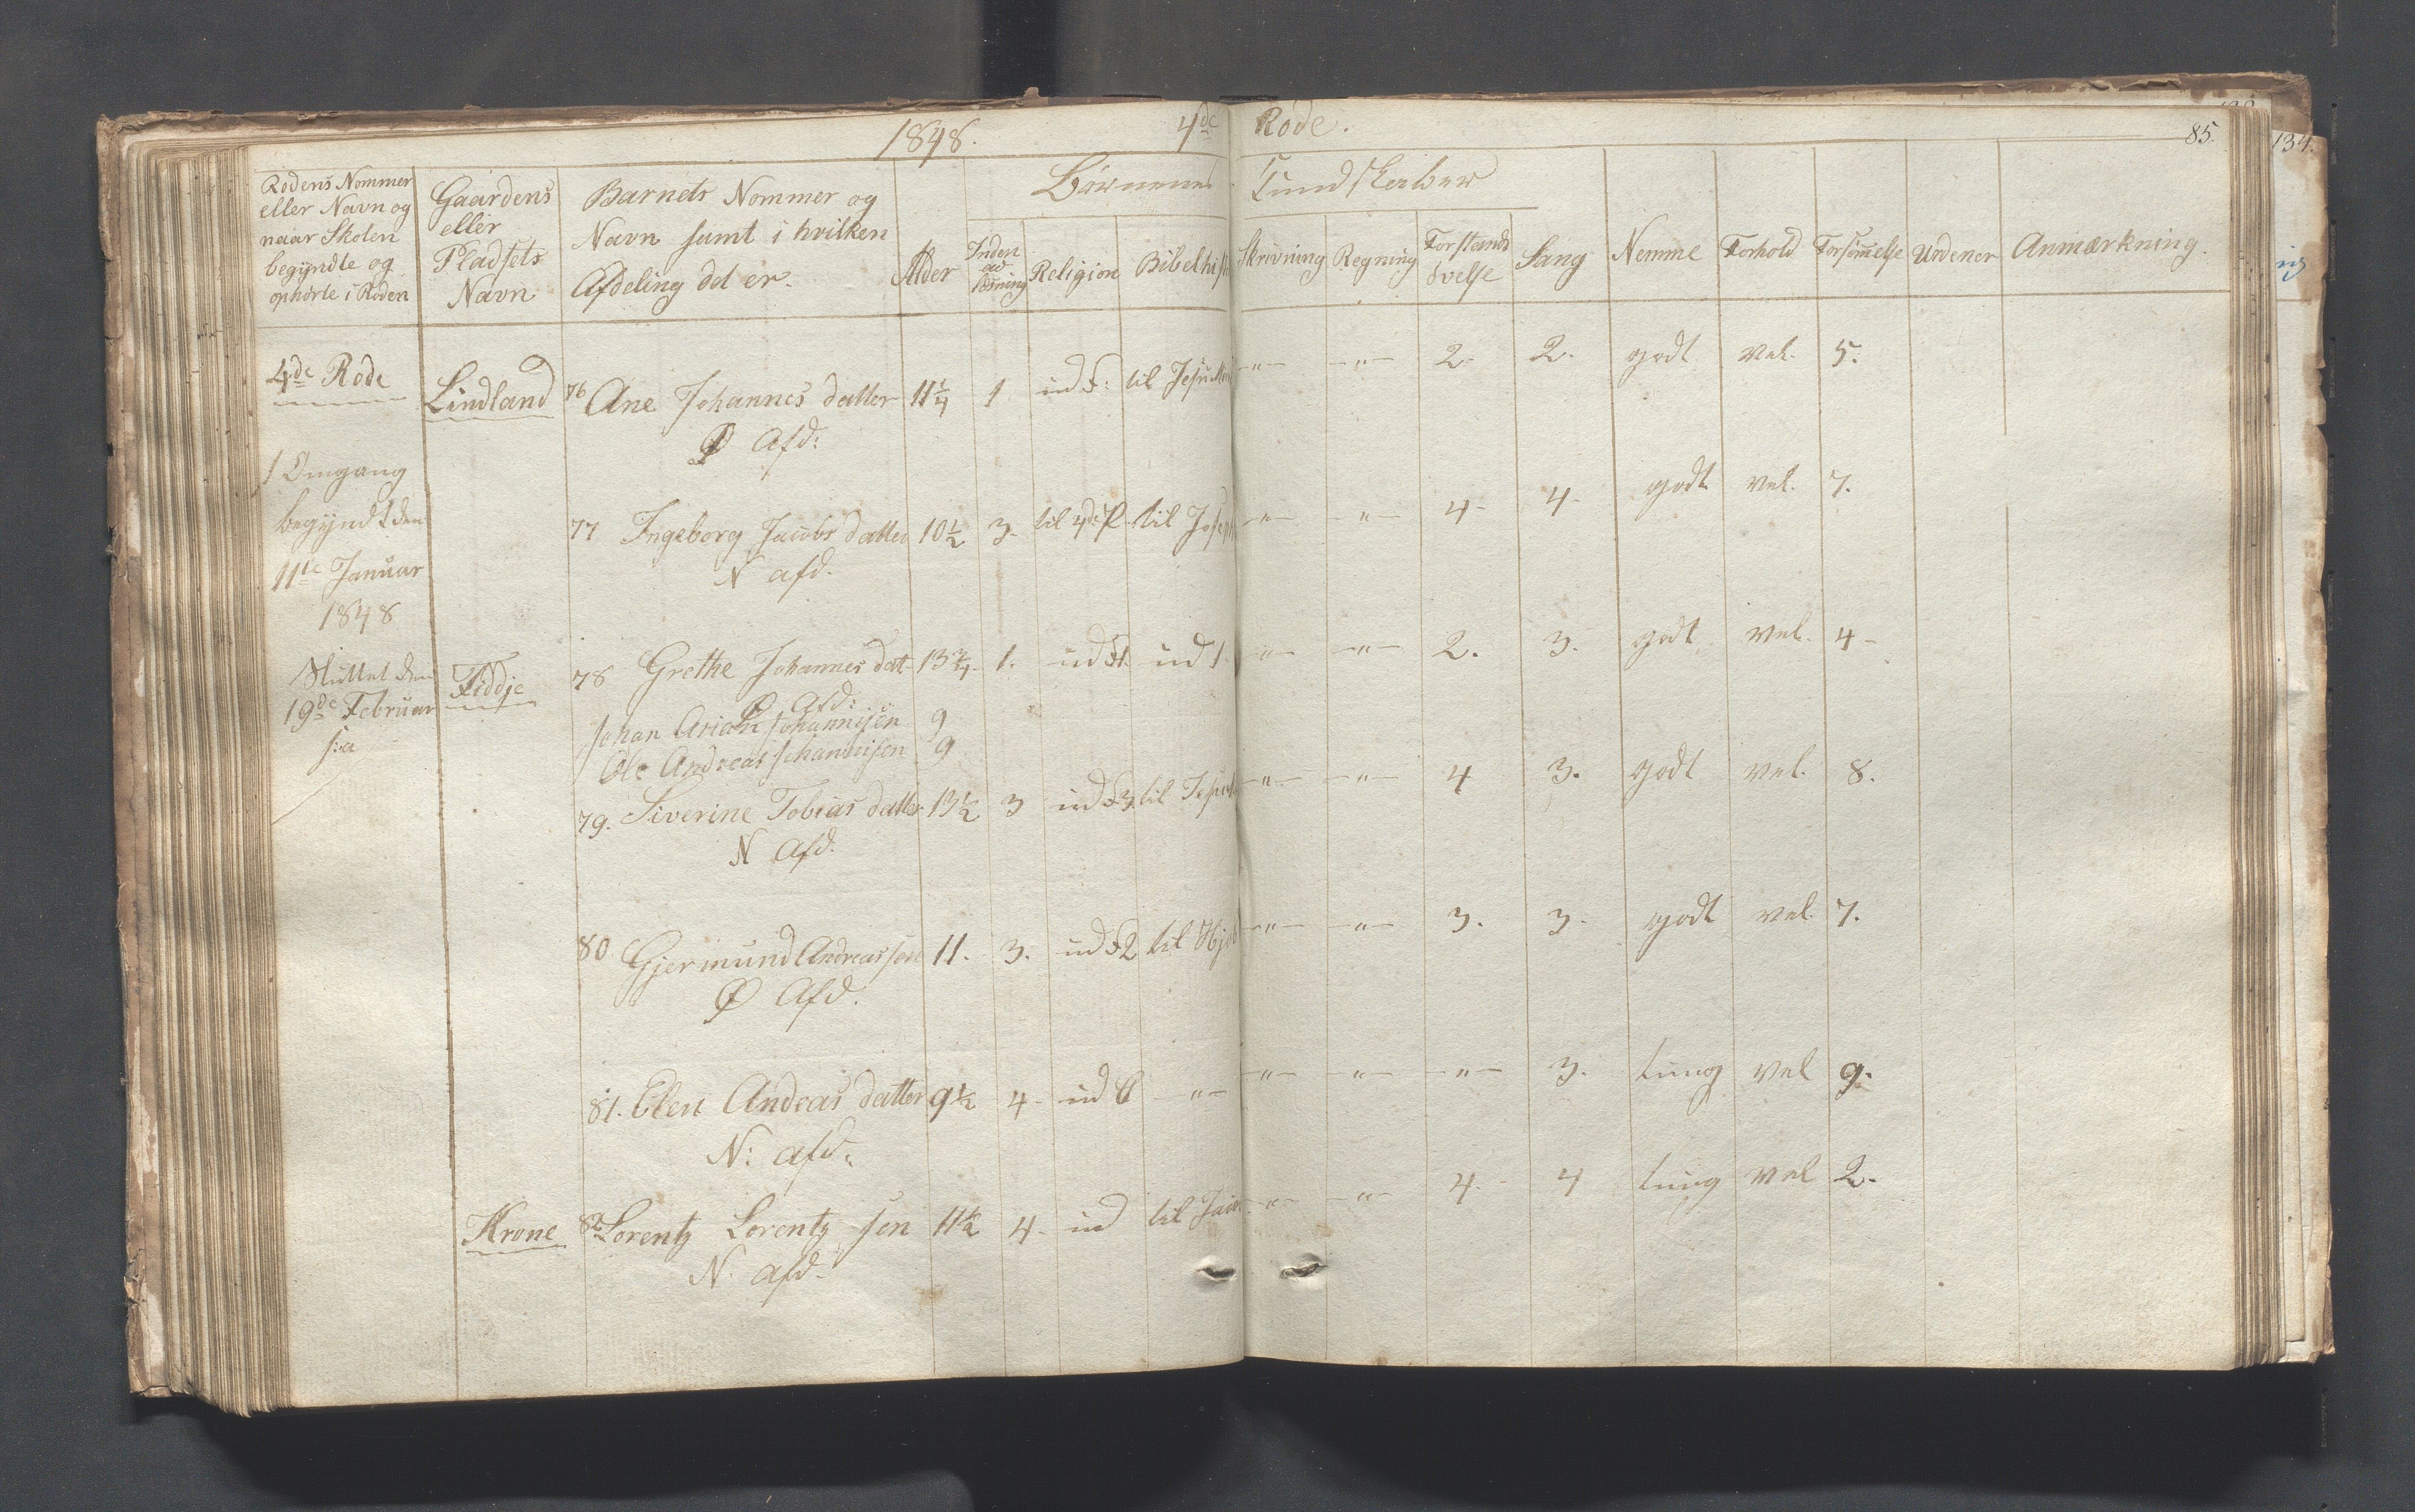 1848. 4de Rode. 85.
134.
Rodens Nommer eller Navn og naar Skolen begyndte og ophørte i Roden
Gaardens eller Pladsets Navn
Barnets Nommer og Navn samt i hvilken Afdeling det er.
Alder
Børnenes Kundskaber
Inden ad læsning
Religion
Bibelhist
Skrivning
Regning
Forstands øvelse
Sang
Nemme
Forhold
Forsømmelse
Uordener
Anmærkning.
4de Rode
Lindland 76 Ane Johannes datter 11 1/4 1 ud F: til Jesu -"- -"- 2- 2. godt vel. 5.
Ø Afd:
1 Omgang
begyndt den
11te Januar
1848
77 Ingeborg Jacobs datter 10 1/2 3. til 4de P. til Joseph -"- -"- 4- 4- godt vel. 7.
N afd.
Sluttet den
19de Februar
s:a
Fiddje 78 Grethe Johannes dat- 13 3/4 1. ud ud 1. -"- -"- 2. 3. godt vel. 4-
Ø Afd:
Johan Arian Johannesen 9
Ole Andreas Johannesen 9
79. Siverine Tobias datter 13 1/2 3 ud til Jesu -"- -"- 4 3. godt vel. 8.
N Afd.
80 Gjermund Andreassen 11. 3. ud 2 til -"- -"- 3. 3. godt vel. 7.
Ø Afd.
81. Elen Andreas datter 9 1/2 4- ud -"- -"- -"- -"- 3. tung vel 9.
N: afd:
Krone 82 Lorentz Lorentz sen 11 1/2 4- ud til -"- -"- 4.- 4 tung vel 2.
N. afd.